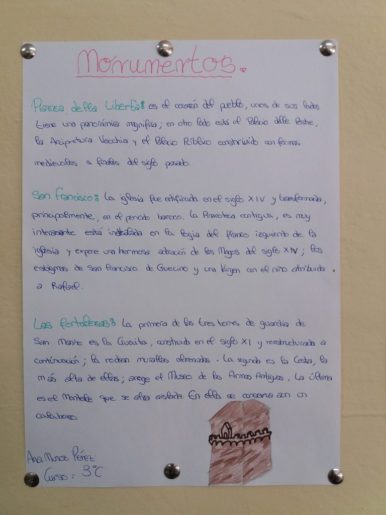 Monumentos.
Piazza della Libertà: es el corazón del pueblo, unos de sus lados
tiene una panorámica magnífica; en otro lado está el Palacio delle Poste,
la Arcipretura Vecchia y el Palacio Público construido con formas
medievales a finales del siglo pasado.
San Francisco: La iglesia fue edificada en el siglo XIV y transformada,
principalmente, en el periodo barroco. La Pinacoteca contigua, es muy
interesante está instalada en la logia del flanco izquierdo de la
iglesia y expone una hermosa adoración de los Magos del siglo XIV; los
estigmas de San Francisco de Guercino y una Virgen con el niño atribuido
a Rafael.
Las fortalezas: La primera de las tres torres de guardia de
San Marino es la Guaita, construida en el siglo XI y reestructurada a
continuación; la rodean murallas almenadas. La segunda es la Cesta, la
más alta de ellas; acoge el Museo de las Armas Antiguas. La última
es el Montale que se alza aislada. En ella se conserva aun un
calabozo.
Ana Muñoz Pérez
Curso: 3ºC